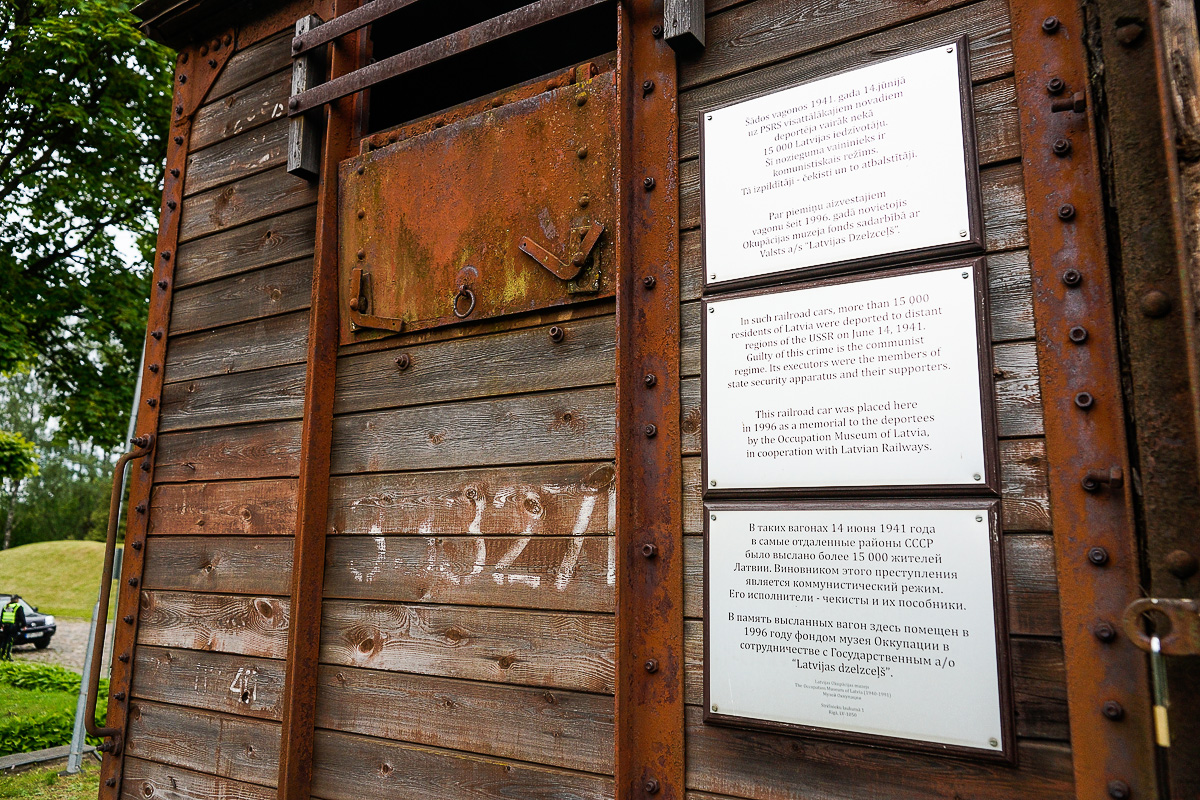 Šādos vagonos 1941. gada 14.jūnijā
uz PSRS visattālākajiem novadiem
deportēja vairāk nekā
15 000 Latvijas iedzīvotāju.
Šī nozieguma vaininieks ir
komunistiskais režīms.
Tā izpildītāji - čekisti un to atbalstītāji.
Par piemiņu aizvestajiem
vagonu šeit 1996. gadā novietojis
Okupācijas muzeja fonds sadarbībā ar
Valsts a/s "Latvijas Dzelzceļš".
In such railroad cars, more than 15 000
residents of Latvia were deported to distant
regions of the USSR on June 14, 1941.
Guilty of this crime is the communist
regime. Its executors were the members of
state security apparatus and their supporters.
This railroad car was placed here
in 1996 as a memorial to the deportees
by the Occupation Museum of Latvia,
in cooperation with Latvian Railways.
В таких вагонах 14 июня 1941 года
в самые отдаленные районы СССР
было выслано более 15 000 жителей
Латвии. Виновником этого преступления
является коммунистический режим.
Его исполнители - чекисты и их пособники.
В память высланных вагон здесь помещен в
1996 году фондом музея Оккупации в
сотрудничестве с Государственным а/о
"Latvijas dzelzceļš".
Latvijas Okupācijas muzejs
The Occupation Museum of Latvia (1940-1991)
Музей Оккупации
Strēlnieku laukums 1
Rīgā, LV-1050